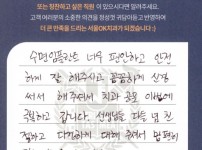 또는 칭찬하고 싶은 직원 이 있으시다면 알려주세요.
고객 여러분의 소중한 의견을 귀담아듣고 반영하여
더 큰 만족을 드리는 서울OK치과가 되겠습니다 :)
수면임플란트 너무 편안하고 안전
하게 잘 해주시고 꼼꼼하게 신경
써서 해주셔서 치과 공포 이번에
극복하고 갑니다. 선생님들 다들 넘 친
절하고 다정하게 대해 주셔서 맘편히